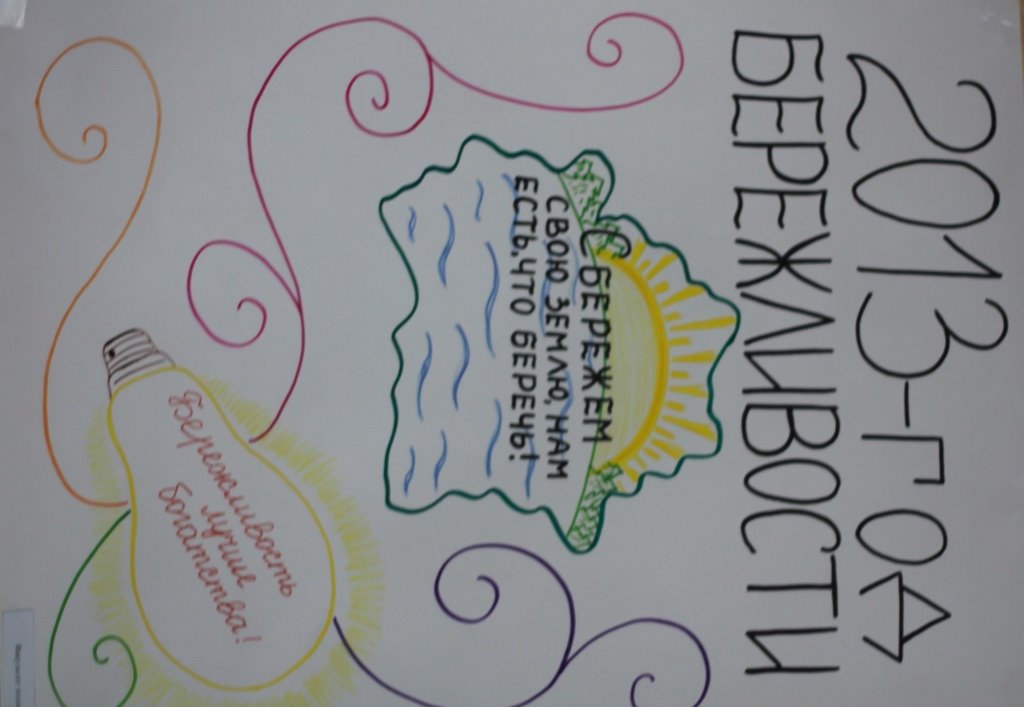 2013-ГОД
БЕРЕЖЛИВОСТИ
СБЕРЕЖЕМ
СВОЮ ЗЕМЛЮ, НАМ
ЕСТЬ, ЧТО БЕРЕЧЬ!
Бережливость
лучше
богатства!